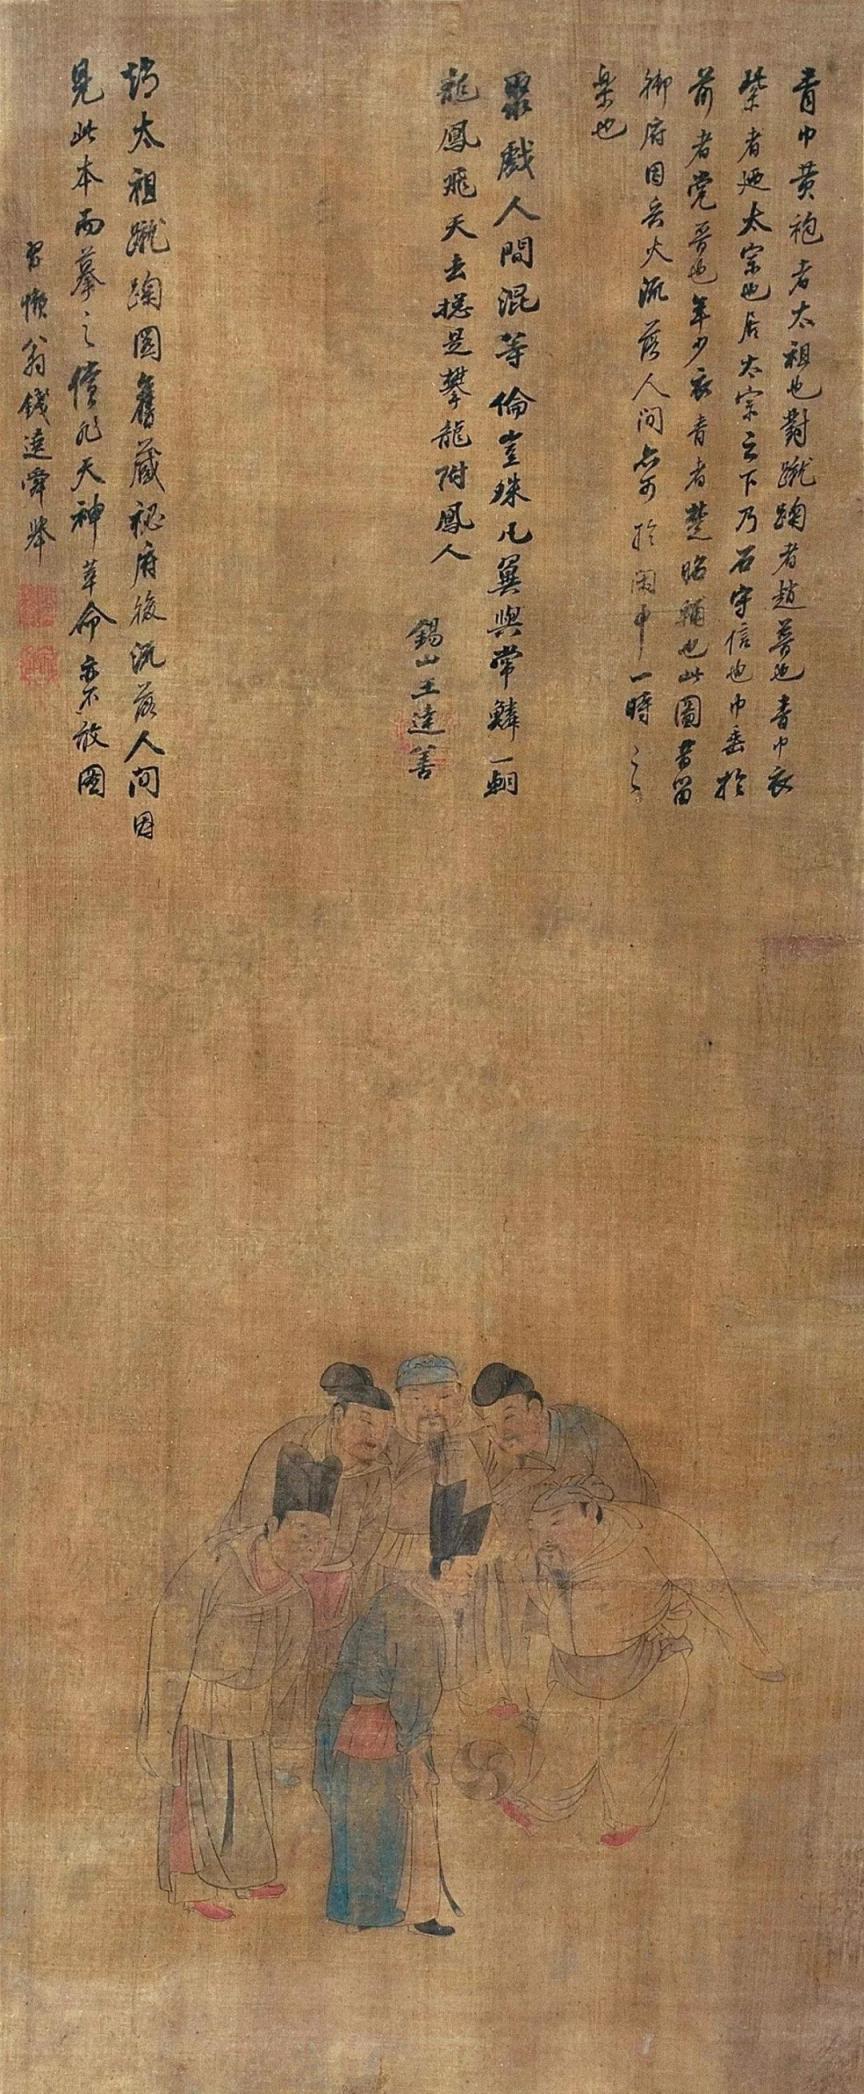 青巾黄袍者太祖也對蹴踘者趙普也青巾衣
紫者廼太宗也居太宗之下乃石守信也巾垂於
前者党晋也年少衣青者楚昭輔也此圖昔留
御府因兵火流落人间亦可於閑中一時之
楽也
聚戲人間混等倫豈殊凡翼與常鱗一朝
龍鳳飛天去總是攀龍附鳳人
錫山王達善
太祖蹴踘圖舊藏祕府後流落人间因
見此本而摹之儻非天神革命亦不敢圖
習懶翁錢選舜舉